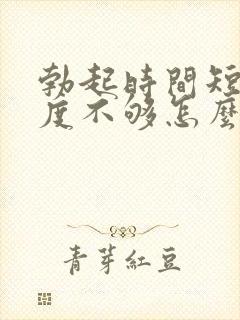 勃起時間短
度不够怎麼
青芽紅豆